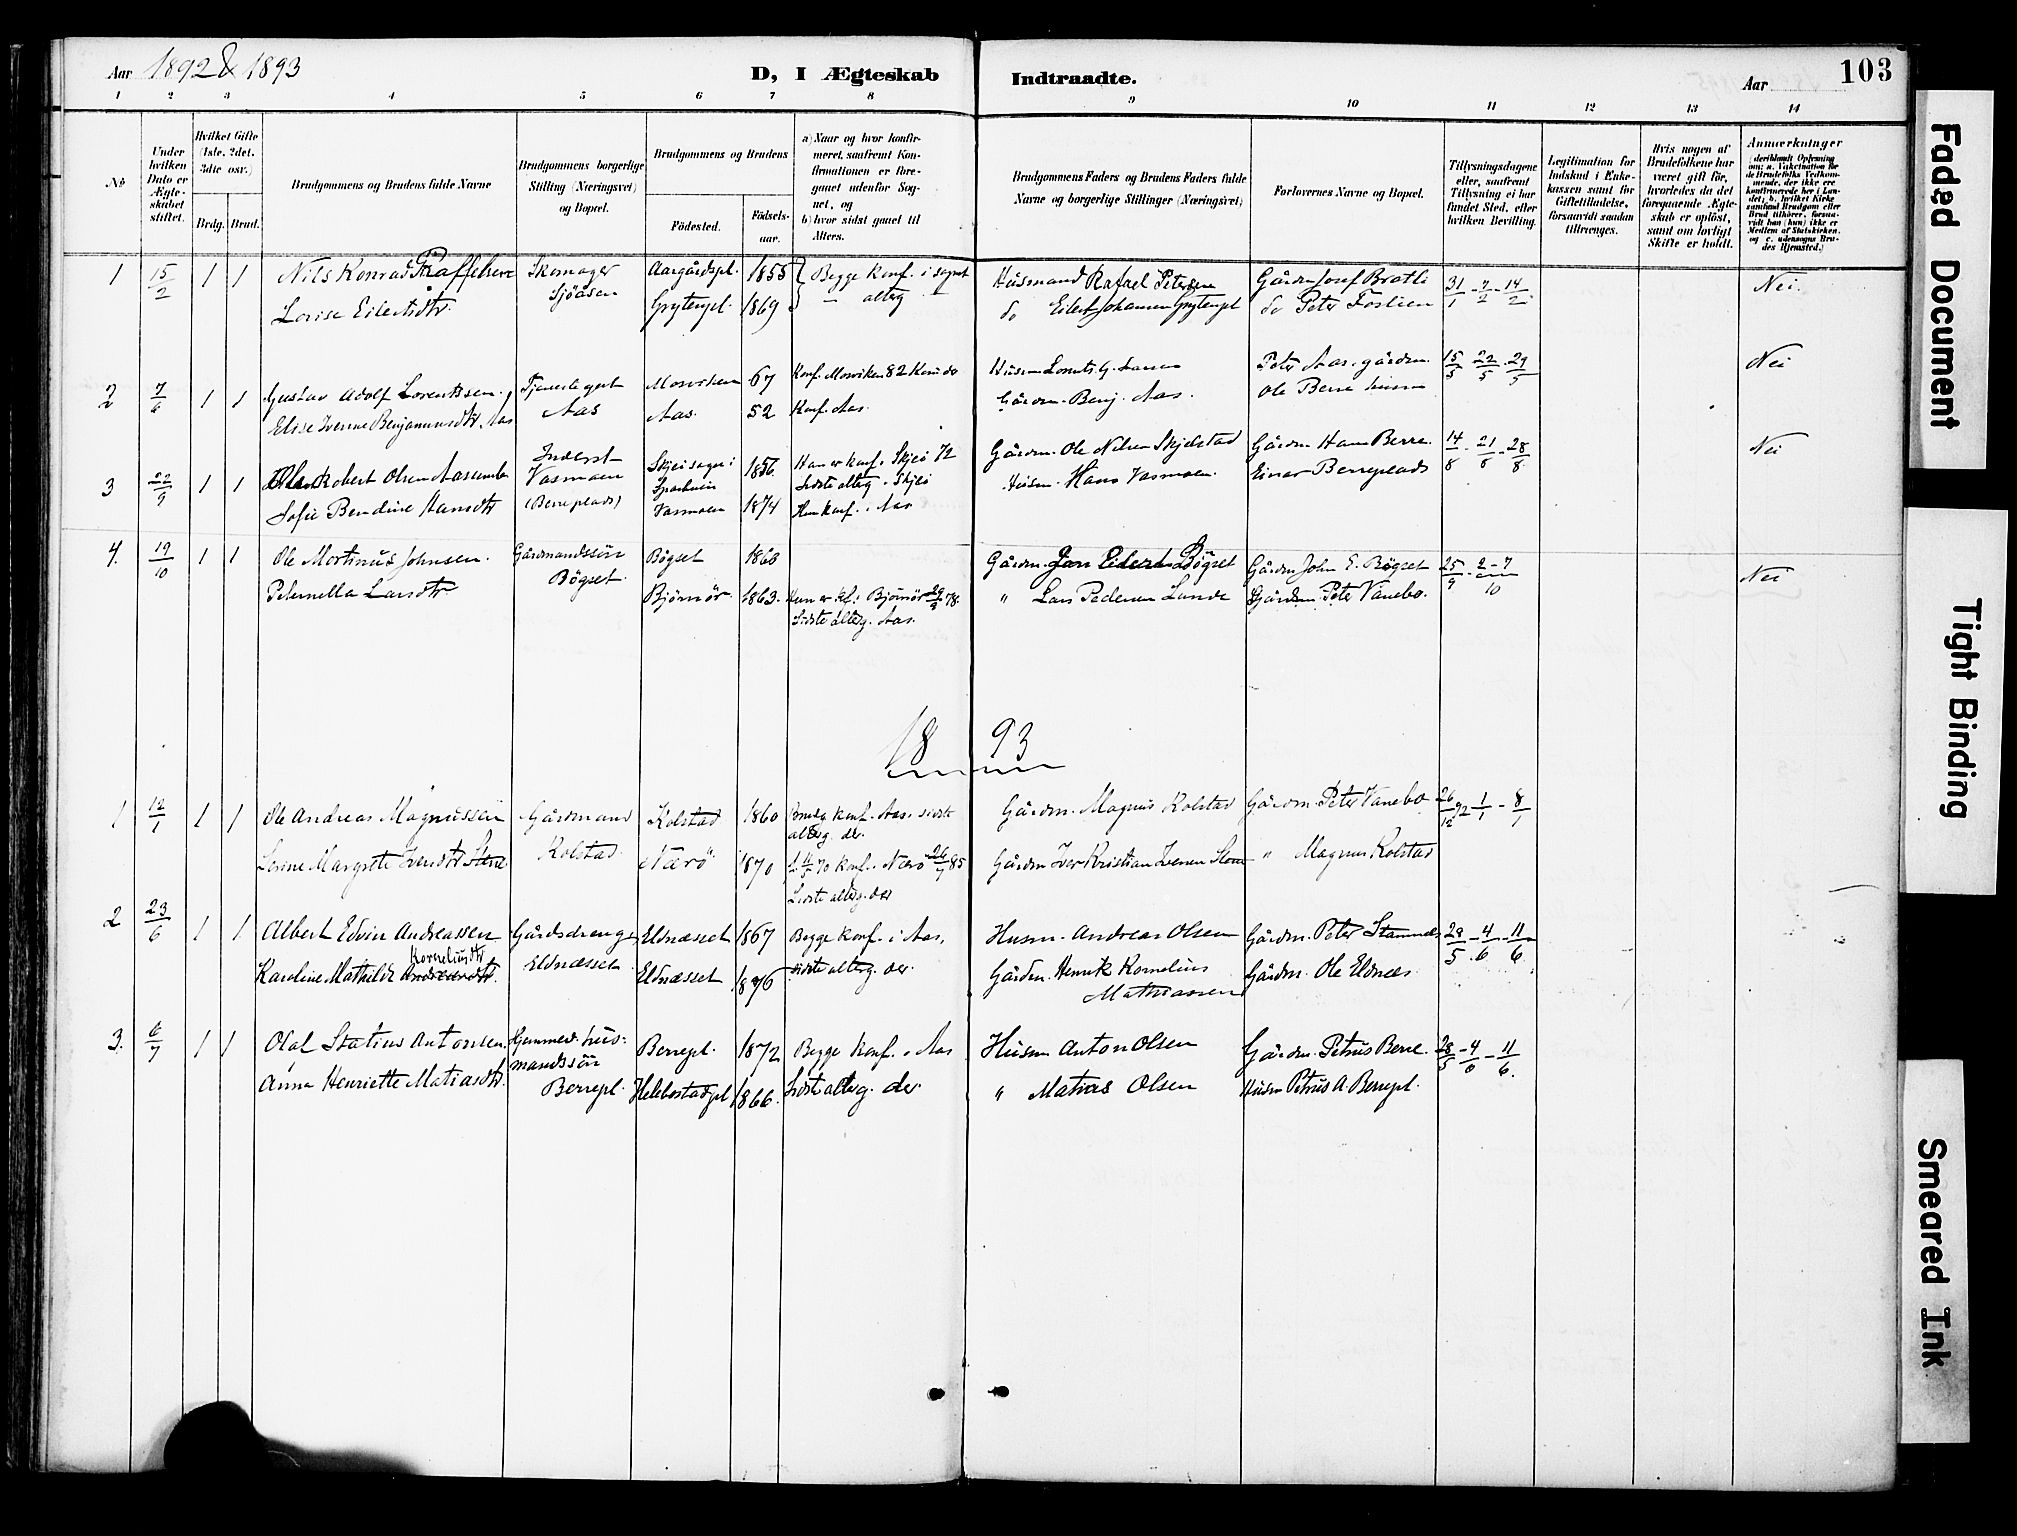 Aar 1892 & 1893
D, I Ægteskab Indtraadte.
Aar
103
1 2 3 4 5 6 7 8 9 10 11 12 13 14
No
Under hvilken Dato er Ægteskabet stiftet.
Hvilket Gifte (1ste, 2det, 3die osv.)
Brdg. Brud.
Brudgommens og Brudens fulde Navne
Brudgommens borgerlige Stilling (Næringsvei) og Bopæl.
Brudgommens og Brudens
Fødested.
Fødselsaar.
a) Naar og hvor konfirmeret, saafremt Konfirmationen er foregaaet udenfor Sognet, og
b) hvor sidst gaaet til Alters.
Brudgommens Faders og Brudens Faders fulde Navne og borgerlige Stillinger (Næringsvei)
Forlovernes Navne og Bopæl.
Tillysningsdagene eller, saafremt Tillysning ei har fundet Sted, efter hvilken Bevilling.
Legitimation for Indskud i Enkekassen samt for Giftetilladelse, forsaavidt saadan tiltrænges.
Hvis nogen af Brudefolkene har været gift før, hvorledes da det foregaaende Ægteskab er opløst, samt om lovligt Skifte er holdt.
Anmærkninger
1 15/2 1 1 Nils Konrad Raffelsen Skomager Sjöåsen Aargårdspl. 1855 Begge konf. i sognet Husmand Rafael Petersen Gårdm Josef Bratli 31/1 - 7/2 - 14/2 Nei.
Lovise Eilertsdtr. Grytenpl. 1869 - alterg - do Eilert Johansen Grytenpl do Peter Foslien
2 7/6 1 1 Gustav Adolf Lorentssen Tjenestegut Aas Mosviken 67 Konf. Mosviken 82 Husm Lorents G. Peter Aas. gårdm. 15/5 22/5 29/5 Nei
Elise Iverine Benjaminsdtr. Aas Aas. 52 Konf. Aas. Gårdm. Benj. Aas. Ole Berre husm
3 22/9 1 1 Robert Olsen Inderst Vasmoen (Berreplads) Skjei sogn i Sparbuen 1856 Han er konf. i Skjei 72 Gårdm. Ole Nilsen Skjelstad Gårdm Hans Berre. 14/8 - 21/8 - 28/8 Nei
Sofie Bendine Hansdtr Vasmoen 1874 Sidste alterg. Skjei Hun konf. i Aas Husm. Hans Vasmoen. Einar Berreplads
4. 19/10 1 1 Ole Mortinus Johnsen. Gårdmandssön Bögset. Bögset 1860 Gårdm. Bögset Gårdm John E. Bögset 25/9 - 2 - 7/10 Nei
Peternella Larsdtr Bjørnør. 1863. Hun er kf. i Bjørnør 29/9 78. Sidste alterg. Aas. " Lars Pedersen Lunde Gårdm Peter Vanebo.
1893
1 12/1 1 1 Ole Andreas Magnussen Gårdmand Kolstad Kolstad 1860 Brudg konf. Aas. sidste alterg. der. Gårdm. Magnus Kolstad Gårdm. Peter Vanebo 26/12 92 1/1 - 8/1
Lorine Margrete Iversdtr Nærö 1870 konf. i Nærö 26/7 85 Sidste alterg. der Gårdm Iver Kristian Iversen " Magnus Kolstad
2 23/6 1 1 Albert Edvin Andreassen Gårdsdreng Eldnæsset Eldnæsset 1867 Begge konf. i Aas, sidste alterg. der. Husm. Andreas Olsen Gårdm. Peter Stamnes 29/5 - 4/6 - 11/6
Karoline Mathilde Korneliusdtr Andreasdtr. Eldnæsset 1876 Gårdm. Henrik Kornelius Mathiassen Gårdm. Ole Eldnæs
3. 6/7 1 1 Olaf Statius Antonsen. Hjemmed. husmandssön Berrepl. Berrepl. 1872 Begge konf. i Aas Husm Anton Olsen Gårdm. Petrus Berre. 28/5 - 4/6 - 11/6.
Anna Henriette Matiasdtr. Helbostadpl 1866. Sidste alterg. der " Matias Olsen Husm Petrus A. Berrepl.
Faded Document
Tight Binding
Smeared Ink